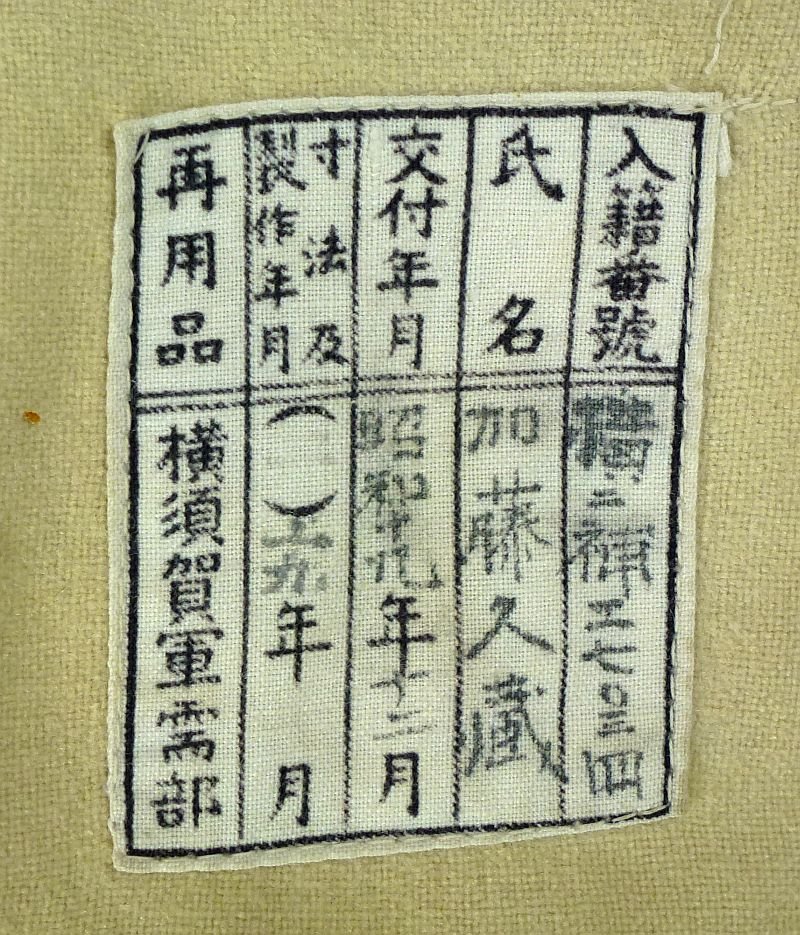 入籍番號
補工七〇三四
氏名
加藤久藏
交付年月
昭和十九年十二月
寸法及
製作年月
（　）九年　月
再用品
橫須賀軍需部